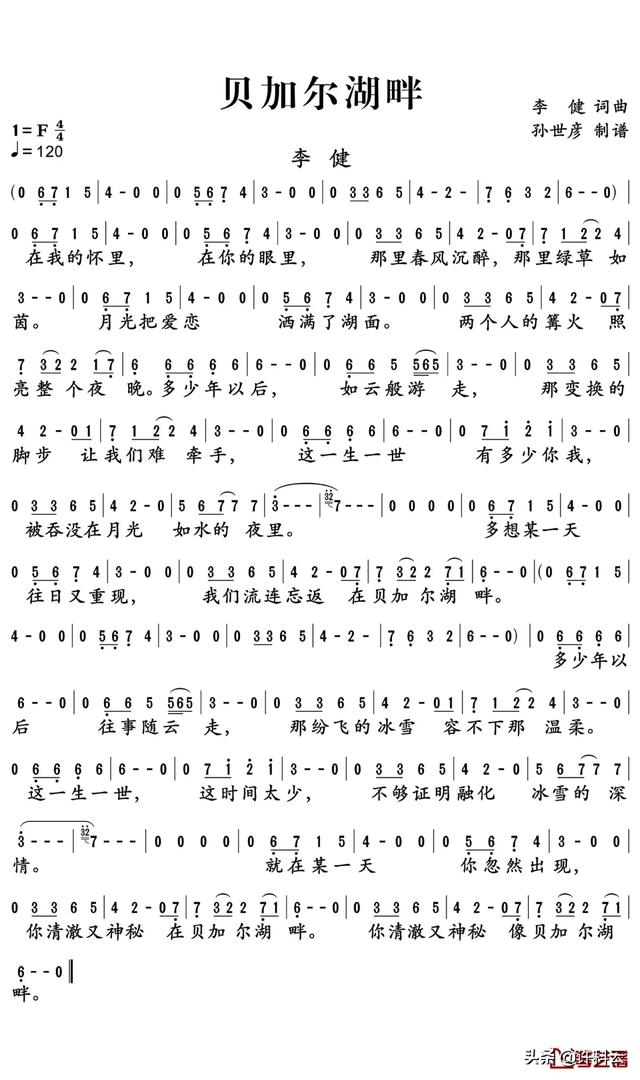 贝加尔湖畔
李 健 词曲
1=F 4/4
孙世彦 制谱
♩=120
李 健
(0 6 7 1 5 | 4 - 0 0 | 0 5 6 7 4 | 3 - 0 0 | 0 3 3 6 5 | 4 2 - - | 7 6 3 2 | 6 - - 0 )
0 6 7 1 5 | 4 - 0 0 | 0 5 6 7 4 | 3 - - 0 | 0 3 3 6 5 | 4 2 - 0 7 | 7 1 2 2 4 |
在我的怀里, 在你的眼里, 那里春风沉醉, 那里绿草 如
3 - - 0 | 0 6 7 1 5 | 4 - 0 0 | 0 5 6 7 4 | 3 - - 0 | 0 3 3 6 5 | 4 2 - 0 7 |
茵。 月光把爱恋 洒满了湖面。 两个人的篝火 照
7 3 2 2 1 7 | 6 6 6 6 6 | 6 - - 0 | 0 6 6 5 5 6 5 | 3 - - 0 | 0 3 3 6 5 |
亮整 个夜 晚。多少年以后, 如云般游 走, 那变换的
4 2 - 0 1 | 7 1 2 2 4 | 3 - - 0 | 0 6 6 6 6 | 6 - - 0 | 0 7 1 2 1 | 3 - - 0 |
脚步 让我们难 牵手, 这一生一世 有多少你我,
0 3 3 6 5 | 4 2 - 0 | 5 6 7 7 7 | 3 - - - | 3 2 7 - - - | 0 0 0 0 | 0 6 7 1 5 | 4 - 0 0 |
被吞没在月光 如水的 夜里。 多想某一天
0 5 6 7 4 | 3 - 0 0 | 0 3 3 6 5 | 4 2 - 0 7 | 7 3 2 2 7 1 | 6 - - 0 | (0 6 7 1 5 |
往日又重现, 我们流连忘返 在贝加 尔湖 畔。
4 - 0 0 | 0 5 6 7 4 | 3 - 0 0 | 0 3 3 6 5 | 4 2 - - | 7 6 3 2 | 6 - - 0 ) | 0 6 6 6 6 |
多少年以
6 - - 0 | 0 6 6 5 5 6 5 | 3 - - 0 | 0 3 3 6 5 | 4 2 - 0 1 | 7 1 2 2 4 | 3 - - 0 |
后 往事随云 走, 那纷飞的冰雪 容不下那 温柔。
0 6 6 6 6 | 6 - - 0 | 0 7 1 2 1 | 3 - - 0 | 0 3 3 6 5 | 4 2 - 0 | 5 6 7 7 7 |
这一生一世, 这时间太少, 不够证明融化 冰雪的 深
3 - - - | 3 2 7 - - - | 0 0 0 0 | 0 6 7 1 5 | 4 - 0 0 | 0 5 6 7 4 | 3 - 0 0 |
情。 就在某一天 你忽然出现,
0 3 3 6 5 | 4 2 - 0 7 | 7 3 2 2 7 1 | 6 - - 0 | 0 3 3 6 5 | 4 2 - 0 7 | 7 3 2 2 7 1 |
你清澈又神秘 在贝加尔湖 畔。 你清澈又神秘 像贝加尔湖
6 - - 0
畔。
头条 @许科云